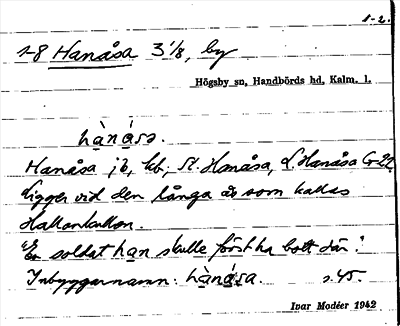 1-2.
1-8 Hanåsa 3 1/8, by
Högsby sn, Handbörds hd, Kalm. l.
hànása.
Hanåsa jb, kb; St. Hanåsa, L. Hanåsa G-22
Ligger vid den långa ås som kallas
Hallonkullen.
"En soldat han skulle först ha bott där."
Inbyggarnamn: hànása. s. 45.
Ivar Modéer 1942